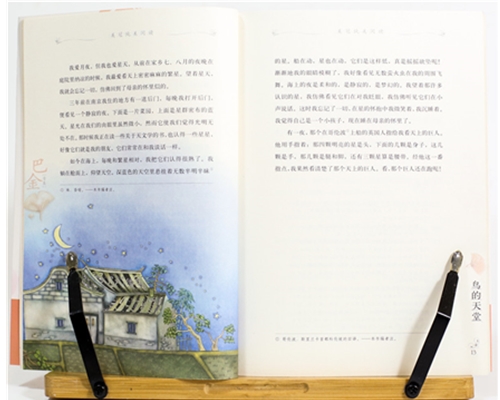 我爱月夜，但我也爱星天。从前在家乡七、八月的夜晚在
庭院里纳凉的时候，我最爱看天上密密麻麻的繁星。望着星天，
我就会忘记一切，仿佛回到了母亲的怀里似的。
三年前在南京我住的地方有一道后门，每晚我打开后门，
便看见一个静寂的夜。下面是一片菜园，上面是星群密布的蓝
天。星光在我们的肉眼里虽然微小，然而它使我们觉得光明无处
不在。那时候我正在读一些关于天文学的书，也认得一些星星，
好像它们就是我的朋友，它们常常在和我谈话一样。
如今在海上，每晚和繁星相对，我把它们认得很熟了。我
躺在舱面上，仰望天空。深蓝色的天空里悬着无数半明半昧
巴金
的星。船在动，星也在动，它们是这样低，真是摇摇欲坠呢！
渐渐地我的眼睛模糊了，我好像看见无数萤火虫在我的周围飞
舞。海上的夜是柔和的，是静寂的，是梦幻的。我望着那许多
认识的星，我仿佛看见它们在对我眨眼，我仿佛听见它们在小
声说话。这时我忘记了一切。在星的怀抱中我微笑着，我沉睡着。
我觉得自己是一个小孩子，现在睡在母亲的怀里了。
有一夜，那个在哥伦波上船的英国人指给我看天上的巨人。
他用手指着：那四颗明亮的星是头，下面的几颗是身子，这几
颗是手，那几颗是腿和脚，还有三颗星算是腰带。经他这一番
指点，我果然看清楚了那个天上的巨人。看，那个巨人还在跑呢！
鸟的天堂
15